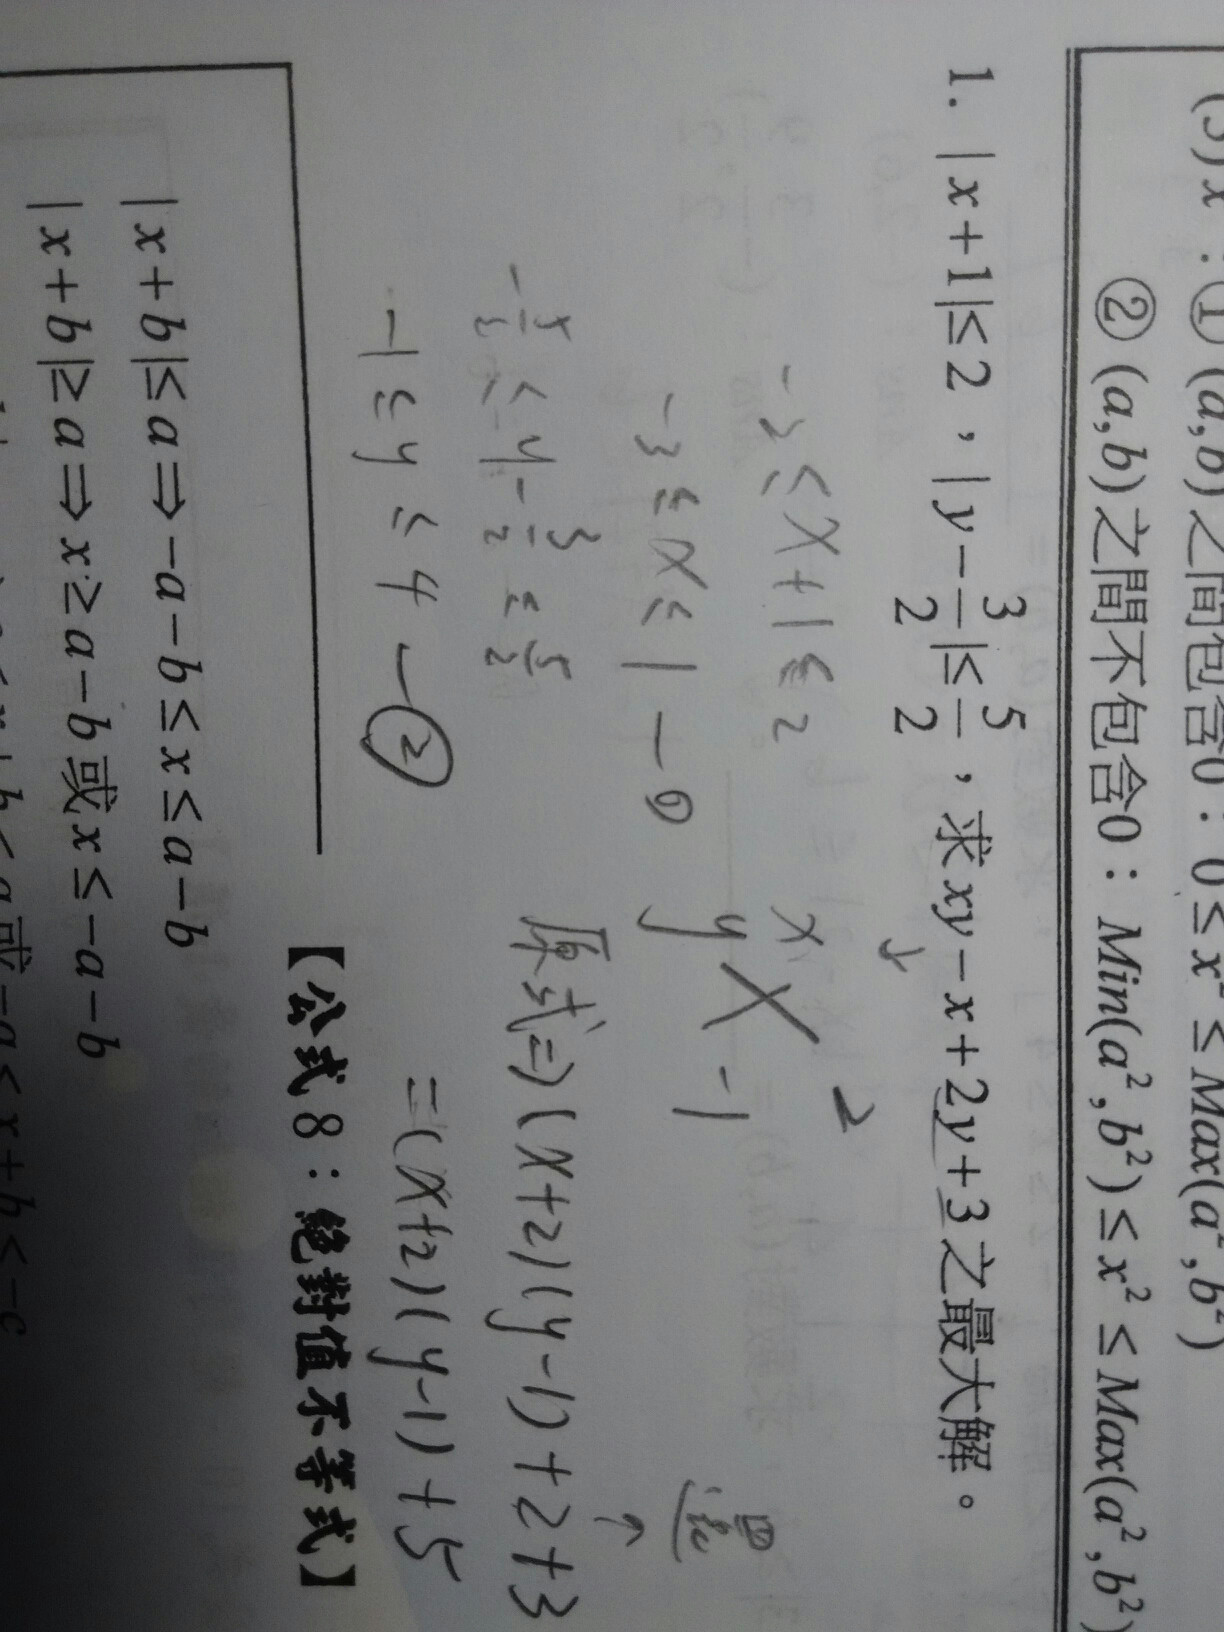 (3) x²: ① (a,b) 之間包含0：0≤x²≤Max(a²,b²)
② (a,b) 之間不包含0：Min(a²,b²)≤x²≤Max(a²,b²)
1. |x+1|≤2，|y-3/2|≤5/2，求xy-x+2y+3之最大解。
-2≤x+1≤2
-3≤x≤1 —①
-5/2≤y-3/2≤5/2
-1≤y≤4 —②
x 2
y -1
原式⇒(x+2)(y-1)+2+3
=(x+2)(y-1)+5
【公式8：絕對值不等式】
|x+b|≤a⇒-a-b≤x≤a-b
|x+b|≥a⇒x≥a-b或x≤-a-b